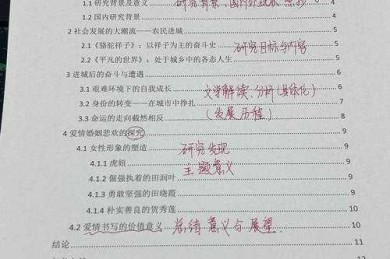 1.1 研究背景及意义 4
1.2 国内研究背景 4
2 社会发展的大潮流——农民进城 5
2.1《骆驼祥子》：以祥子为主的奋斗史 研究目标与内容 5
2.2《平凡的世界》：处于城乡中的各态人生 6
3 进城后的奋斗与遭遇 6
3.1 艰难环境下的自我成长 文学解读、分析(具体化) 6
3.2 身份的转变——在城市中挣扎 (发展历程) 7
3.3 命运的走向截然相反 8
4 爱情婚姻悲欢的探究 9
4.1 女性形象的塑造 研究发现 9
4.1.1 虎妞 主题意义 9
4.1.2 倔强执着的田润叶 10
4.1.3 勇敢坚强的田晓霞 10
4.1.4 朴实善良的贺秀莲 10
4.2 爱情书写的价值意义 总结意义与展望 10
结论 11